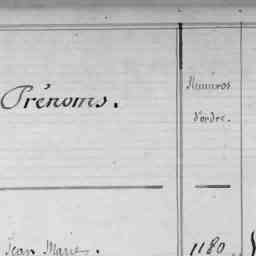 Prénoms.
Numéros
d'ordre.
Jean Marie.
1180